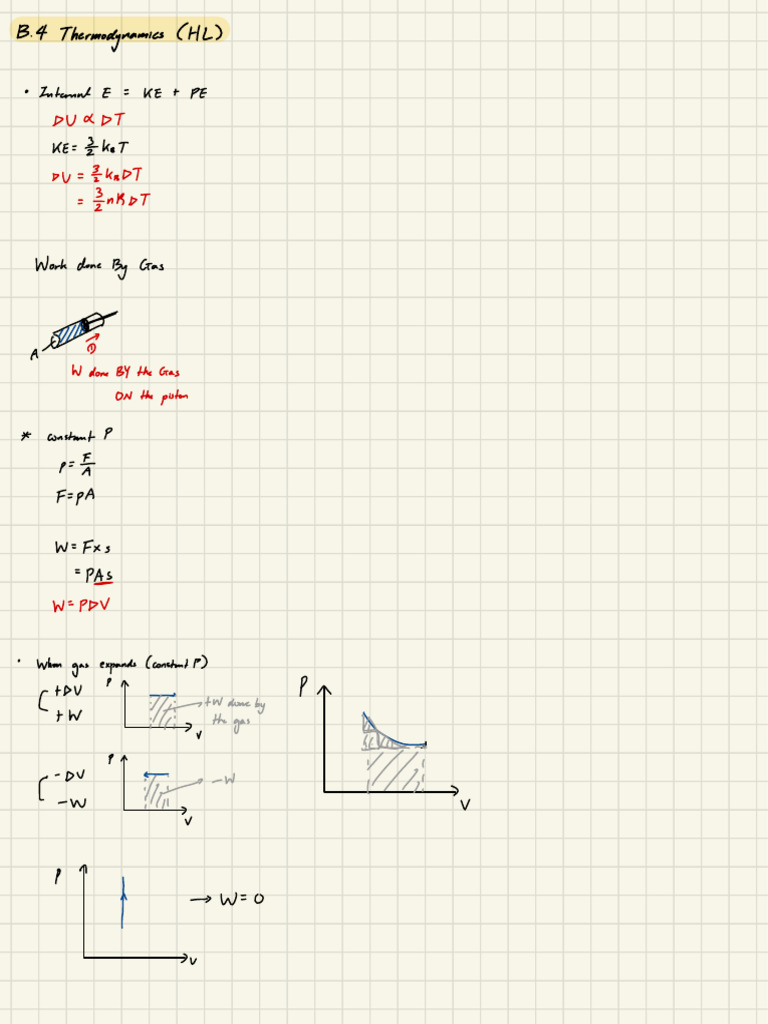 B.4 Thermodynamics (HL)
• Internal E = KE + PE
ΔU ∝ ΔT
KE = 3/2 k_B T
ΔU = 3/2 k_B ΔT
= 3/2 nRΔT
Work done By Gas
A
W done BY the Gas
ON the piston
* constant P
P = F/A
F = PA
W = F x s
= PAs
W = PΔV
• When gas expands (constant P)
+ΔV
+W
P
V
+W done by
the gas
P
V
-ΔV
-W
P
V
-W
P
V
→ W = 0